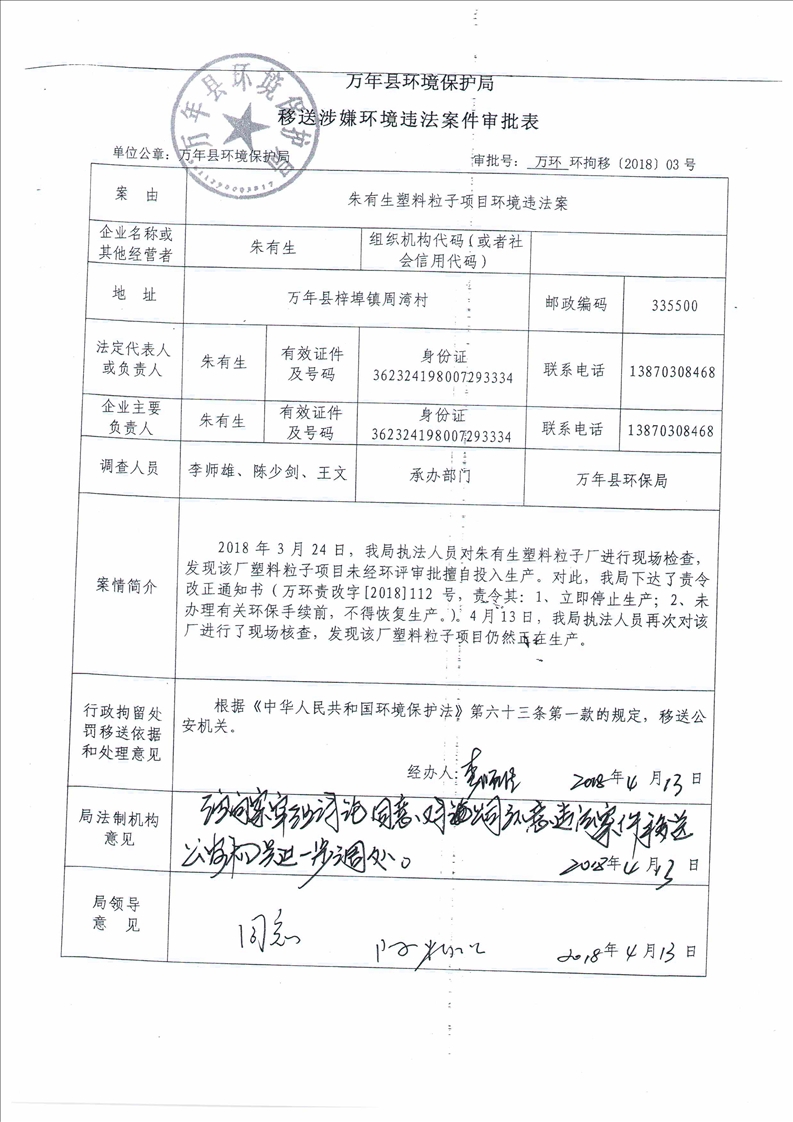 万年县环境保护局
移送涉嫌环境违法案件审批表
单位公章：万年县环境保护局 审批号： 万环 环拘移〔2018〕03号
万年县环境保护局
案 由 朱有生塑料粒子项目环境违法案
企业名称或
其他经营者 朱有生 组织机构代码（或者社
会信用代码）
地 址 万年县梓埠镇周湾村 邮政编码 335500
法定代表人
或负责人 朱有生 有效证件
及号码 身份证
362324198007293334 联系电话 13870308468
企业主要
负责人 朱有生 有效证件
及号码 身份证
362324198007293334 联系电话 13870308468
调查人员 李师雄、陈少剑、王文 承办部门 万年县环保局
案情简介
2018年3月24日，我局执法人员对朱有生塑料粒子厂进行现场检查，
发现该厂塑料粒子项目未经环评审批擅自投入生产。对此，我局下达了责令
改正通知书（万环责改字[2018]112号，责令其：1、立即停止生产；2、未
办理有关环保手续前，不得恢复生产。）。4月13日，我局执法人员再次对该
厂进行了现场核查，发现该厂塑料粒子项目仍然正在生产。
行政拘留处
罚移送依据
和处理意见
根据《中华人民共和国环境保护法》第六十三条第一款的规定，移送公
安机关。
经办人：李师雄 2018年4月13日
局法制机构
意见
讨论同意 违法案件移送
公安机关进一步调处。
2018年4月13日
局领导
意 见
同意 2018年4月13日